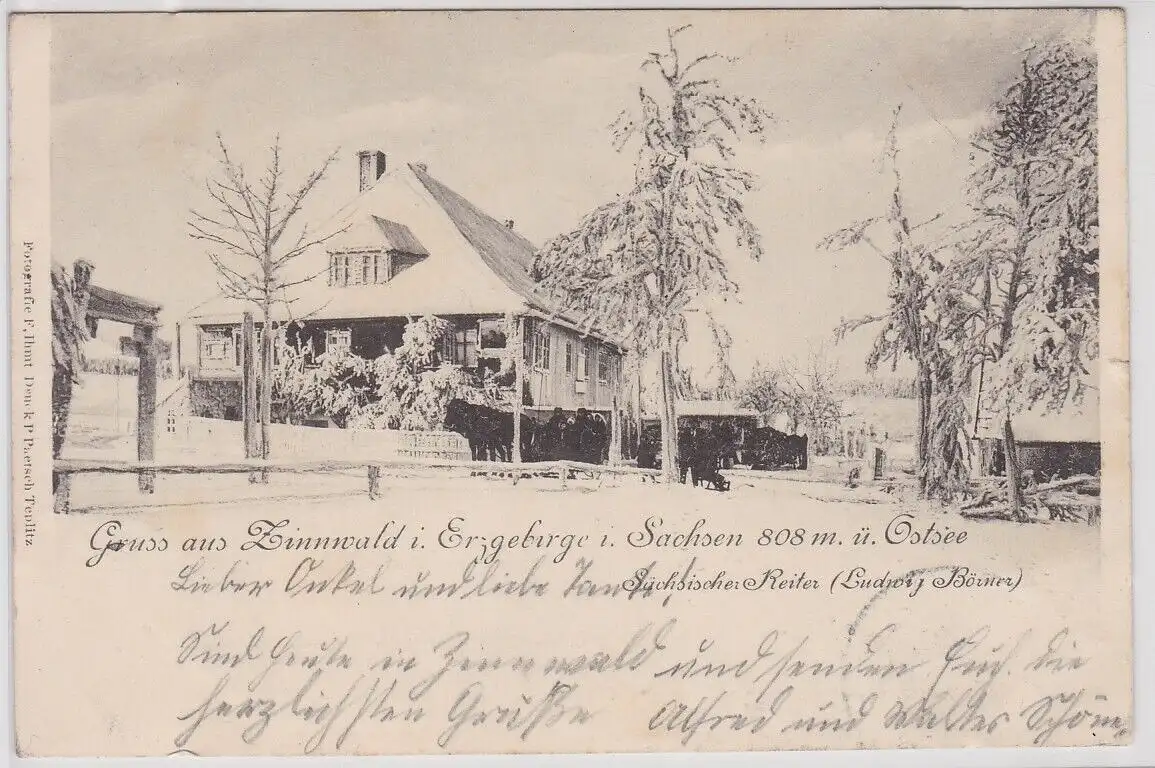 Fotografie F. Ihmt Druck P. Paetsch Teplitz
Gruss aus Zinnwald i. Erzgebirge i. Sachsen 808 m. ü. Ostsee
Sächsischer Reiter (Ludwig Börner)
Lieber Onkel und liebe Tante!
Sind heute in Zinnwald und senden Euch die
herzlichsten Grüße Alfred und Walter Schöne